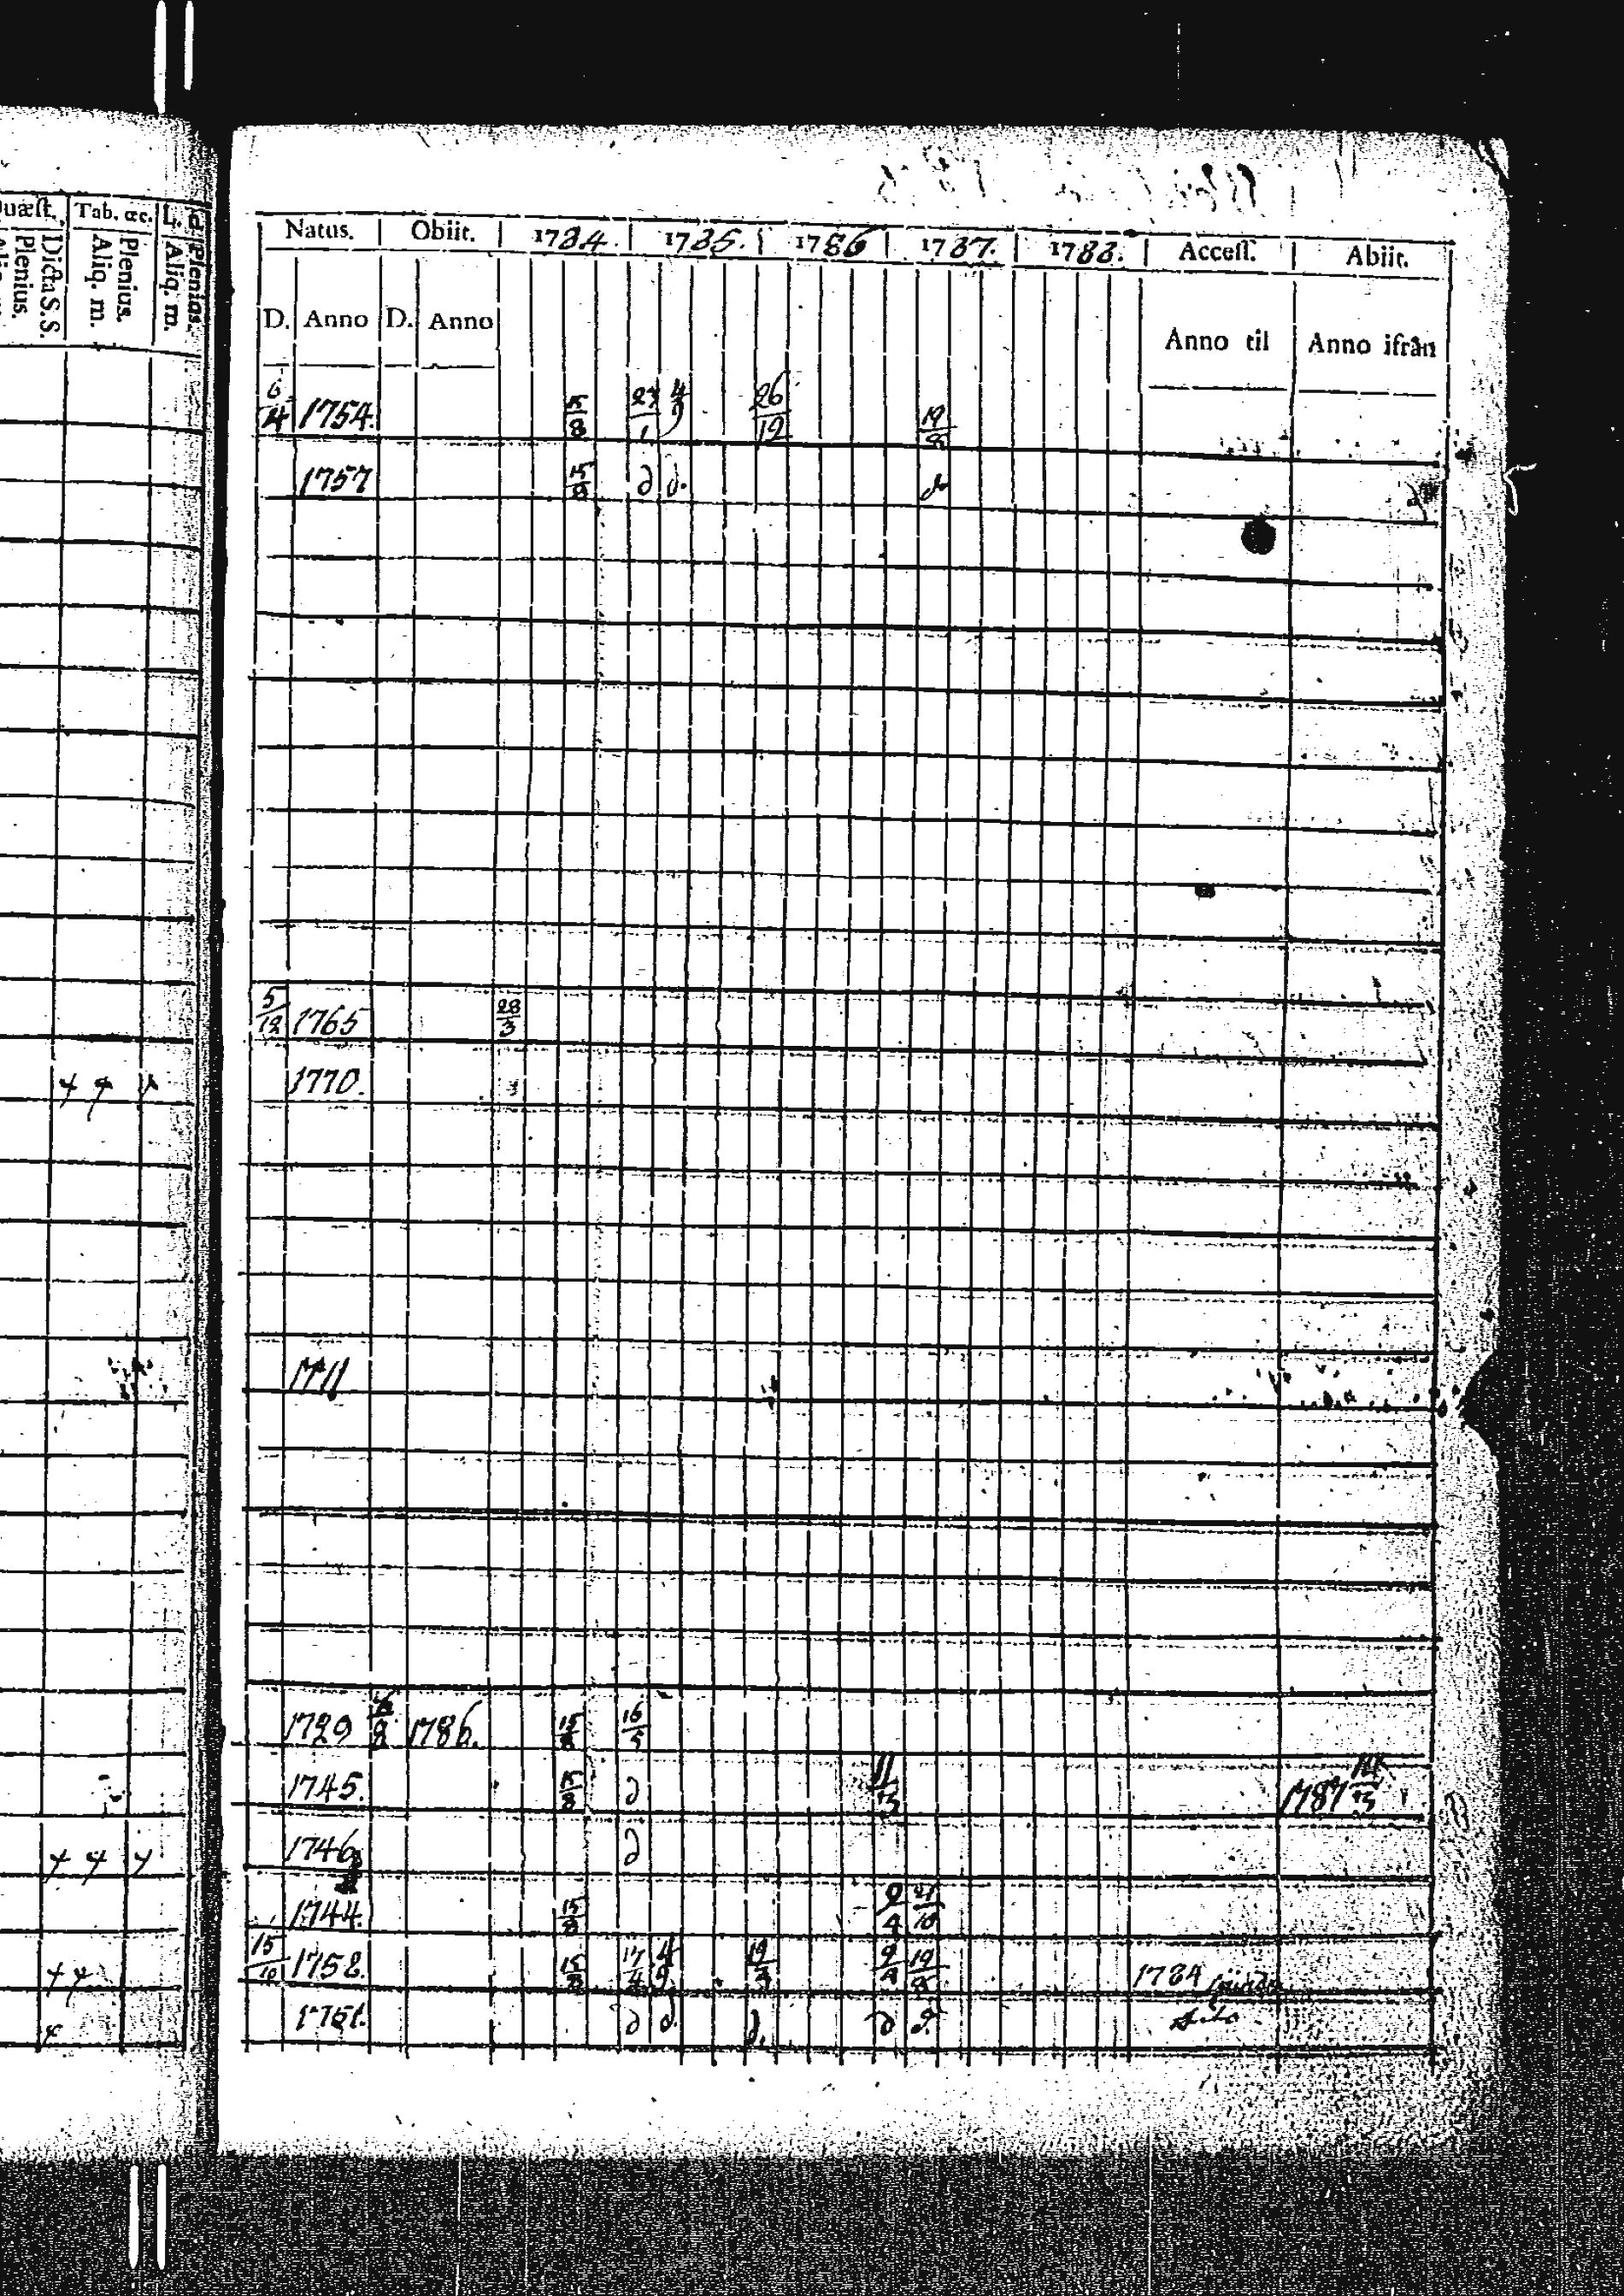 Quæst. Tab. œc.
Dicta S. S.
Plenius.
Plenius.
Aliq. m.
Plenius.
Aliq. m.
Natus. Obiit. 1784. 1785. 1786 1787. 1788. Access. Abiit.
D. Anno D. Anno Anno til Anno ifrån
6/4 1754. 15/8 23/1 4/9 26/12 19/8
1757 15/8 d d. do
5/12 1765 28/3
4 4 4 1770.
1711
1729 1786. 15/8 16/5
1745. 15/8 d 11/5 1787 14/5
4 4 4 1746 d
1744. 15/8 9/4 21/10
4 4 15/12 1758. 15/8 17/4 4/9 19/3 9/4 19/8 1784
4 1751. d d. d. d d. dito